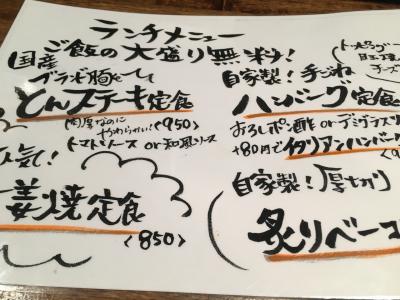 ランチメニュー
ご飯の大盛り無料!
国産
ブランド豚
とんステーキ定食
肉厚なのに
やわらかい! <950>
トマトソース or 和風ソース
人気!
姜焼定食
<850>
自家製!手ごね
ハンバーグ定食
おろしポン酢 or デミグラスソ
+80円でイタリアンハンバーグ
自家製!厚切り
炙りベーコ